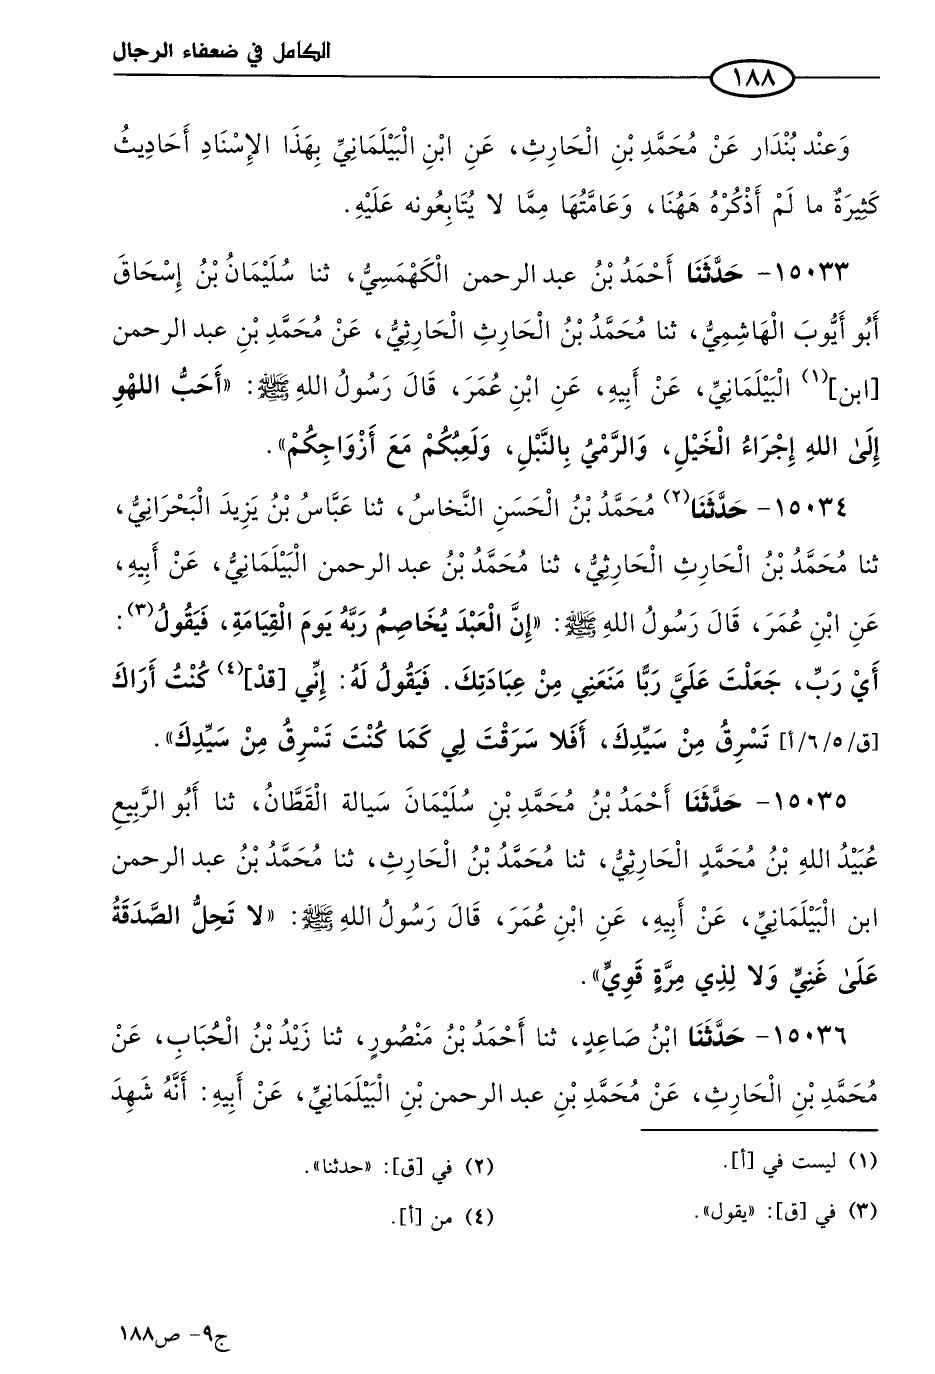 الكامل في ضعفاء الرجال
١٨٨
وَعنْد بُنْدَار عَنْ مُحَمَّدِ بْنِ الْحَارِثِ، عَنِ ابْنِ الْبَيْلَمَانِيِّ بِهَذَا الإِسْنَادِ أَحَادِيثُ
كَثِيرَةٌ ما لَمْ أَذْكُرْهُ هَهُنَا، وَعَامَّتُهَا مِمَّا لا يُتَابِعُونه عَلَيْهِ.
١٥٠٣٣- حَدَّثَنَا أَحْمَدُ بْنُ عبد الرحمن الْكَهْمَسِيُّ، ثنا سُلَيْمَانُ بْنُ إِسْحَاقَ
أَبُو أَيُّوبَ الْهَاشِمِيُّ، ثنا مُحَمَّدُ بْنُ الْحَارِثِ الْحَارِثِيُّ، عَنْ مُحَمَّدِ بْنِ عبد الرحمن
[ابن](١) الْبَيْلَمَانِيِّ، عَنْ أَبِيهِ، عَنِ ابْنِ عُمَرَ، قَالَ رَسُولُ اللهِ ﷺ: «أَحَبُّ اللهْوِ
إِلَىٰ اللهِ إِجْرَاءُ الْخَيْلِ، وَالرَّمْيُ بِالنَّبْلِ، وَلَعِبُكُمْ مَعَ أَزْوَاجِكُمْ».
١٥٠٣٤- حَدَّثَنَا(٢) مُحَمَّدُ بْنُ الْحَسَنِ النَّخاسُ، ثنا عَبَّاسُ بْنُ يَزِيدَ الْبَحْرَانِيُّ،
ثنا مُحَمَّدُ بْنُ الْحَارِثِ الْحَارِثِيُّ، ثنا مُحَمَّدُ بْنُ عبد الرحمن الْبَيْلَمَانِيُّ، عَنْ أَبِيهِ،
عَنِ ابْنِ عُمَرَ، قَالَ رَسُولُ اللهِ ﷺ: «إِنَّ الْعَبْدَ يُخَاصِمُ رَبَّهُ يَومَ الْقِيَامَةِ، فَيَقُولُ(٣):
أَيْ رَبِّ، جَعَلْتَ عَلَيَّ رَبًّا مَنَعَنِي مِنْ عِبَادَتِكَ. فَيَقُولُ لَهُ: إِنِّي [قدْ](٤) كُنْتُ أَرَاكَ
[ق/٦/٥/أ] تَسْرِقُ مِنْ سَيِّدِكَ، أَفَلا سَرَقْتَ لِي كَمَا كُنْتَ تَسْرِقُ مِنْ سَيِّدِكَ».
١٥٠٣٥- حَدَّثَنَا أَحْمَدُ بْنُ مُحَمَّدِ بْنِ سُلَيْمَانَ سَيالة الْقَطَّانُ، ثنا أَبُو الرَّبِيعِ
عُبَيْدُ اللهِ بْنُ مُحَمَّدٍ الْحَارِثِيُّ، ثنا مُحَمَّدُ بْنُ الْحَارِثِ، ثنا مُحَمَّدُ بْنُ عبد الرحمن
ابن الْبَيْلَمَانِيِّ، عَنْ أَبِيهِ، عَنِ ابْنِ عُمَرَ، قَالَ رَسُولُ اللهِ ﷺ: «لا تَحِلُّ الصَّدَقَةُ
عَلَىٰ غَنِيٍّ وَلا لِذِي مِرَّةٍ قَوِيٍّ».
١٥٠٣٦- حَدَّثَنَا ابْنُ صَاعِدٍ، ثنا أَحْمَدُ بْنُ مَنْصُورٍ، ثنا زَيْدُ بْنُ الْحُبَابِ، عَنْ
مُحَمَّدِ بْنِ الْحَارِثِ، عَنْ مُحَمَّدِ بْنِ عبد الرحمن بْنِ الْبَيْلَمَانِيِّ، عَنْ أَبِيهِ: أَنَّهُ شَهِدَ
(١) ليست في [أ]. (٢) في [ق]: «حدثنا».
(٣) في [ق]: «يقول». (٤) من [أ].
ج٩- ص١٨٨